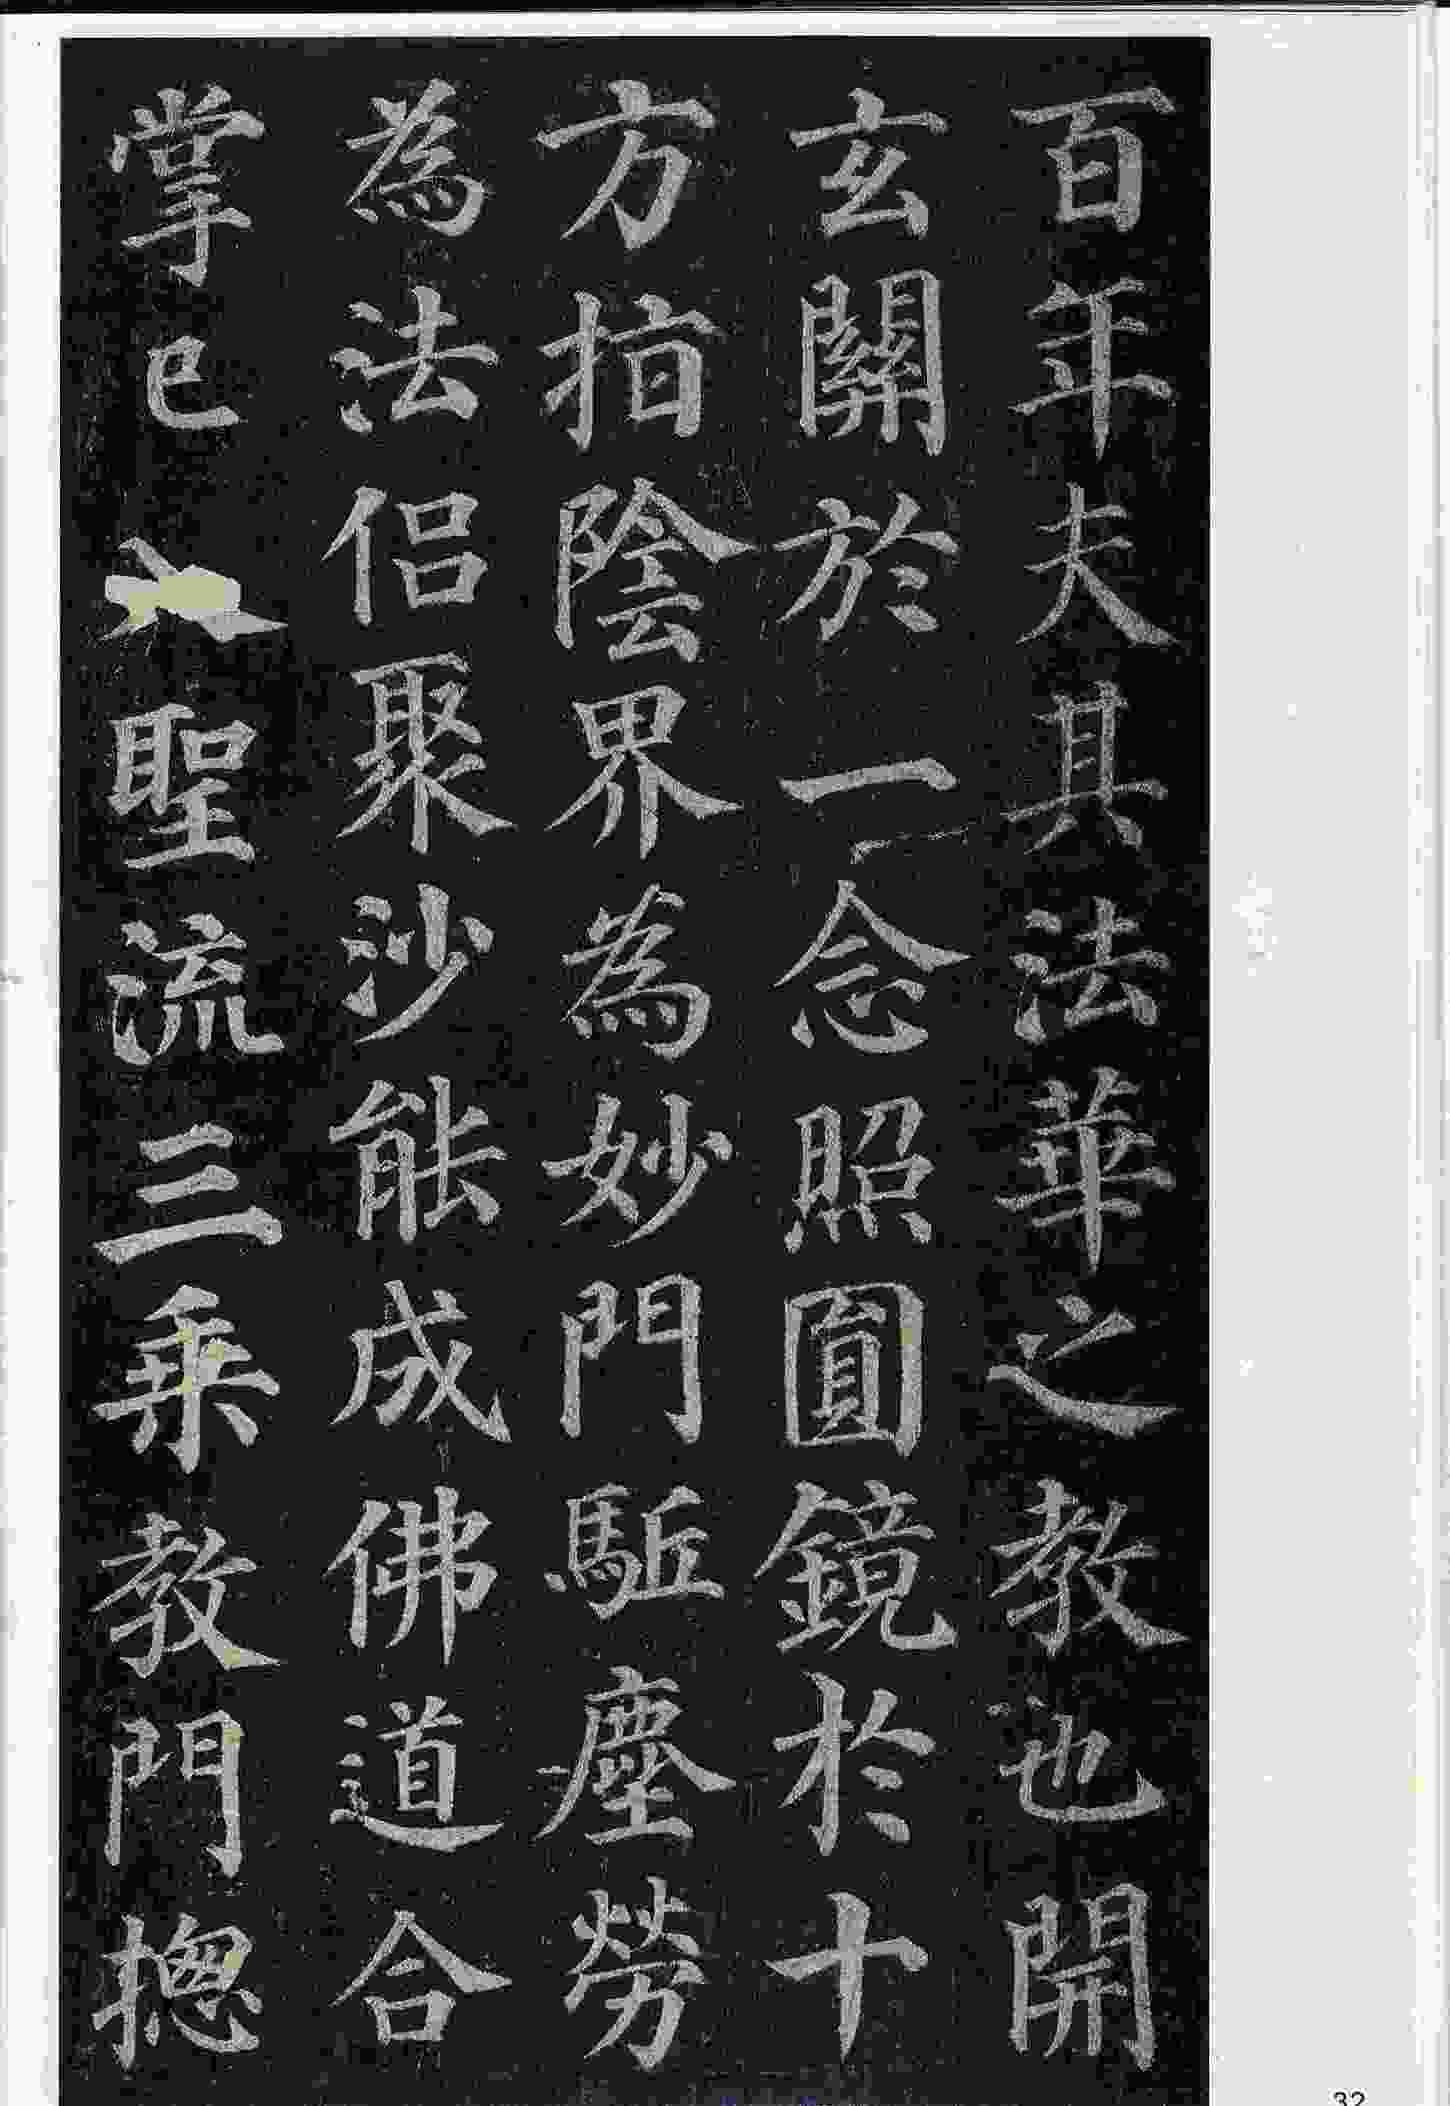 百年夫其法華之教也開
玄關於一念照圎鏡於十
方指陰界為妙門駈塵勞
為法侶聚沙能成佛道合
掌已入聖流三乘教門揔
32